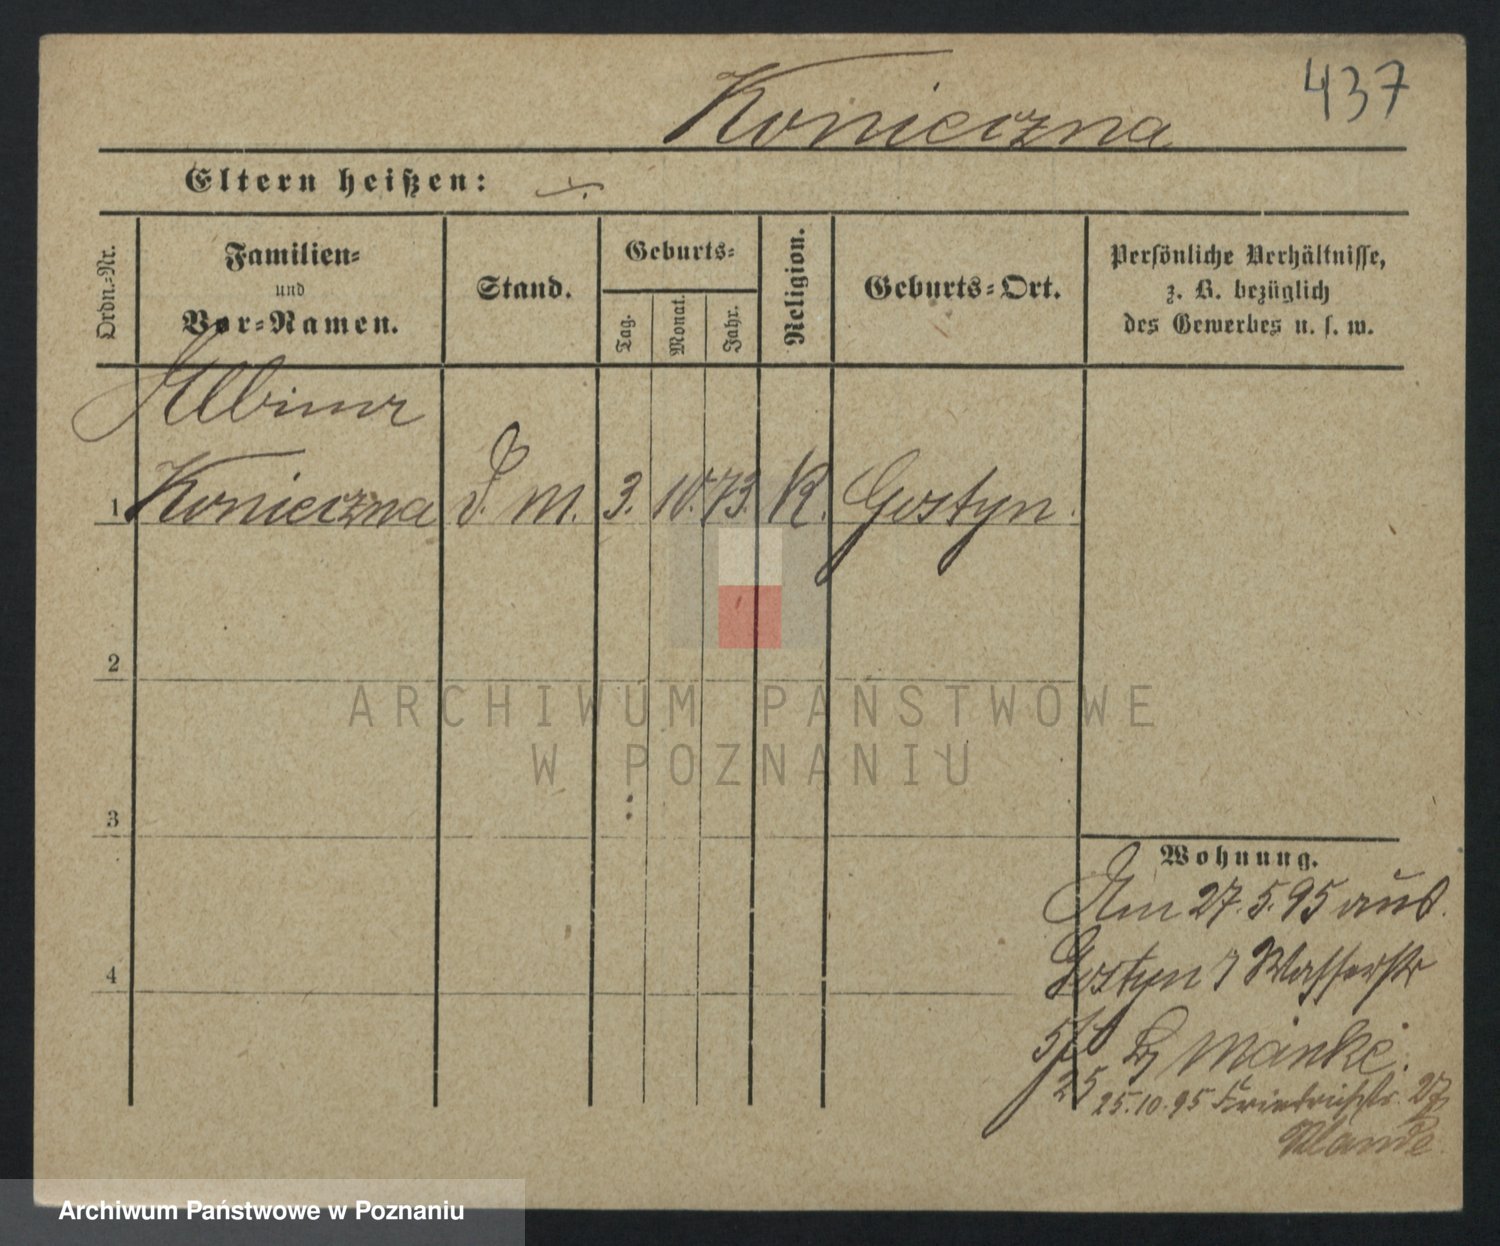 437
Konieczna
Eltern heißen: ./.
Ordn.-Nr.
Familien-
und
Vor-Namen.
Stand.
Geburts-
Tag.
Monat.
Jahr.
Religion.
Geburts-Ort.
Persönliche Verhältnisse,
z. B. bezüglich
des Gewerbes u. s. w.
Albina
1 Konieczna D. M. 3. 10. 73. K. Gostyn.
2
ARCHIWUM PAŃSTWOWE
W POZNANIU
3
Wohnung.
Am 27.5.95 aus
Gostyn Wasserstr
4
b/ Mänke.
25.10.95 Friedrichstr. 27
Archiwum Państwowe w Poznaniu